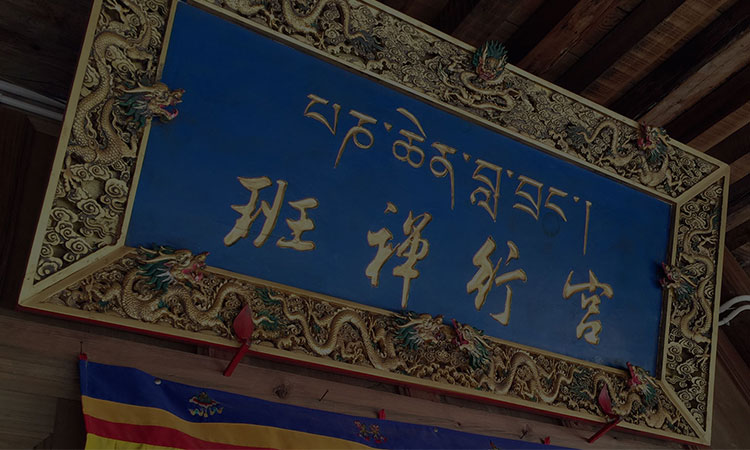 པཎ་ཆེན་བླ་བྲང་།
班禅行宫